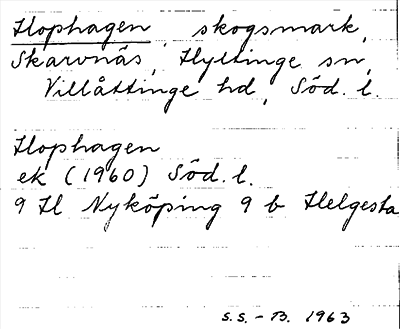 Hophagen, skogsmark,
Skarvnäs, Hyltinge sn,
Villåttinge hd, Söd. l.
Hophagen
ek (1960) Söd. l.
9 H Nyköping 9 b Helgesta
S.S. - B. 1963